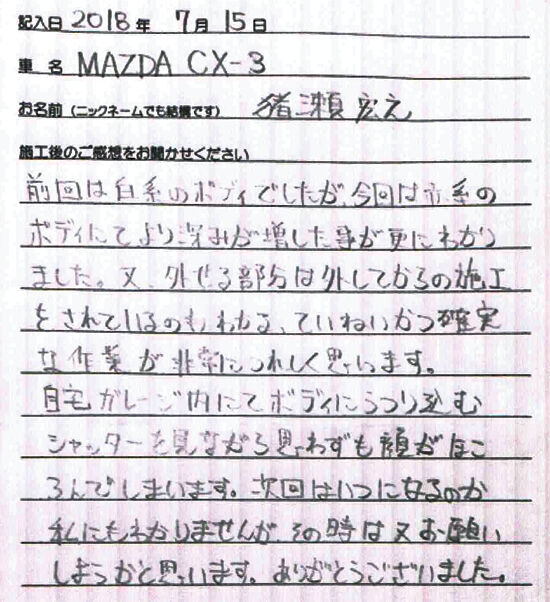 記入日 2018年 7月 15日
車名 MAZDA CX-3
お名前(ニックネームでも結構です) 猪瀬 宏之
施工後のご感想をお聞かせください
前回は白系のボディでしたが、今回は赤系の
ボディにてより深みが増した事が更にわかり
ました。又、外せる部分は外してからの施工
をされているのもわかる、ていねいかつ確実
な作業が非常にうれしく思います。
自宅ガレージ内にてボディにうつり込む
シャッターを見ながら思わずも顔がほこ
ろんでしまいます。次回はいつになるのか
私にもわかりませんが、その時は又お願い
しようかと思います。ありがとうございました。